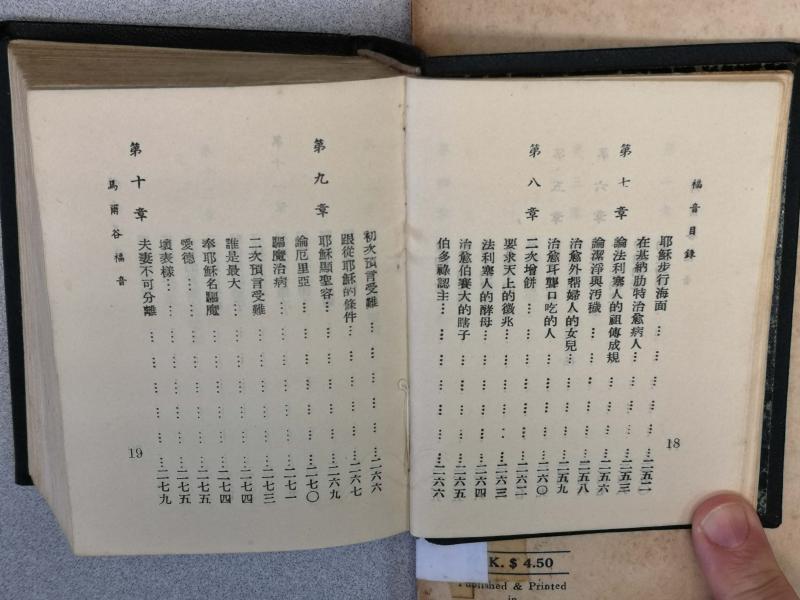 福音目錄
耶穌步行海面 … … … … …二五二
在基納肋特治愈病人… … … … …二五三
第七章
論法利塞人的祖傳成規 … … … …二五三
論潔淨與汚穢 … … … … …二五六
治愈外幫婦人的女兒… … … … …二五八
治愈耳聾口吃的人 … … … …二五九
第八章
二次增餅 … … … … … …二六〇
要求天上的徵兆 … … … … …二六二
法利塞人的酵母 … … … … …二六三
治愈伯賽大的瞎子 … … … …二六四
伯多祿認主… … … … … …二六五
18
初次預言受難 … … … … …二六六
跟從耶穌的條件 … … … … …二六七
第九章
耶穌顯聖容… … … … … …二六九
論厄里亞 … … … … … …二七〇
驅魔治病 … … … … … …二七一
二次預言受難 … … … … …二七三
誰是最大 … … … … … …二七四
奉耶穌名驅魔 … … … … …二七四
愛德… … … … … … …二七五
壞表樣… … … … … … …二七五
第十章
夫妻不可分離 … … … … …二七九
馬爾谷福音
19
K. $ 4.50
Published & Printed
in